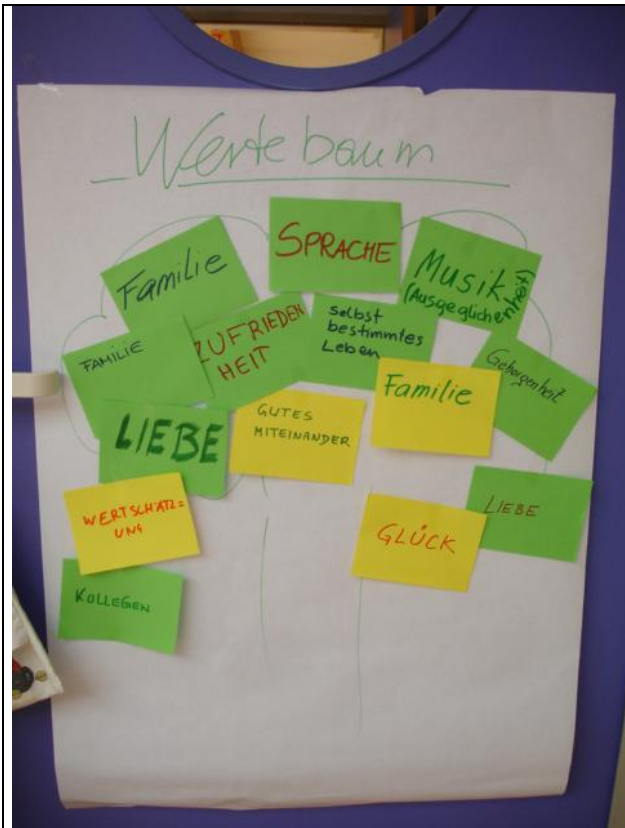 Wertebaum
Familie
SPRACHE
Musik
(Ausgeglichenheit)
FAMILIE
ZUFRIEDEN
HEIT
selbst
bestimmtes
Leben
Familie
Geborgenheit
LIEBE
GUTES
MITEINANDER
WERTSCHÄTZ=
UNG
GLÜCK
LIEBE
KOLLEGEN